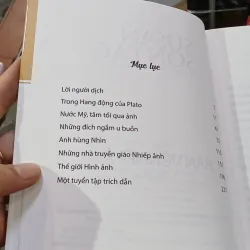 Mục lục
Lời người dịch
Trong Hang động của Plato
Nước Mỹ, tăm tối qua ảnh
Những đích ngắm u buồn
Anh hùng Nhìn
Những nhà truyền giáo Nhiếp ảnh
Thế giới Hình ảnh
Một tuyển tập trích dẫn